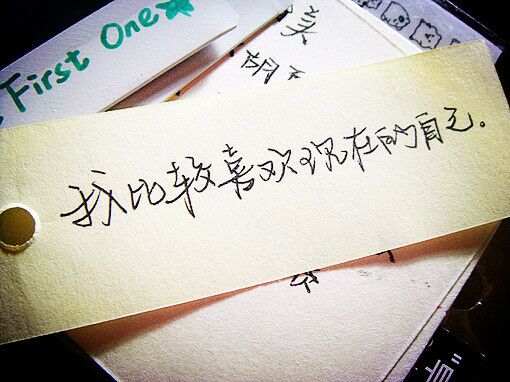 First One
美
胡
我比较喜欢现在的自己。